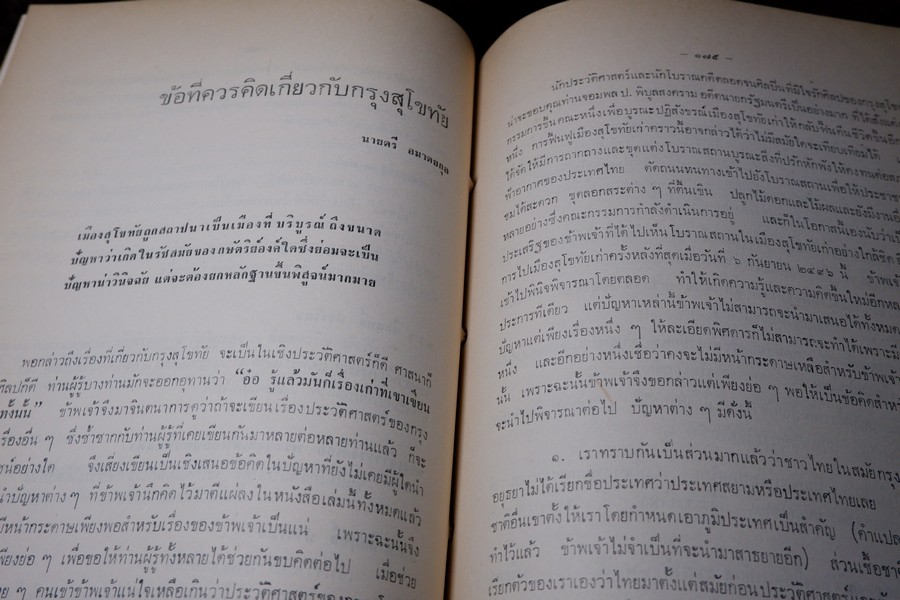 ข้อที่ควรคิดเกี่ยวกับกรุงสุโขทัย
นายตรี อมาตยกุล
เมืองสุโขทัยถูกสถาปนาเป็นเมืองที่ บริบูรณ์ ถึงขนาด
ปัญหาว่าเกิดในรัชสมัยของกษัตริย์องค์ใดซึ่งย่อมจะเป็น
ปัญหาน่าวินิจฉัย แต่จะต้องยกหลักฐานขึ้นพิสูจน์มากมาย
พอกล่าวถึงเรื่องที่เกี่ยวกับกรุงสุโขทัย จะเป็นในเชิงประวัติศาสตร์ก็ดี ศาสนาก็
ศิลปก็ดี ท่านผู้รู้บางท่านมักจะออกอุทานว่า “อ๋อ รู้แล้วมันก็เรื่องเก่าที่เขาเขียน
ทั้งนั้น” ข้าพเจ้าจึงมาจินตนาการดูว่าถ้าจะเขียนเรื่องประวัติศาสตร์ของกรุง
เรื่องอื่น ๆ ซึ่งซ้ำซากกับท่านผู้รู้ที่เคยเขียนกันมาหลายต่อหลายท่านแล้ว ก็จะ
อย่างใด จึงเสี่ยงเขียนเป็นเชิงเสนอข้อคิดในปัญหาที่ยังไม่เคยมีผู้ใดนำ
นำปัญหาต่าง ๆ ที่ข้าพเจ้านึกคิดไว้มาตีแผ่ลงในหนังสือเล่มนี้ทั้งหมดแล้ว
มีหน้ากระดาษเพียงพอสำหรับเรื่องของข้าพเจ้าเป็นแน่ เพราะฉะนั้นจึง
เพียงย่อ ๆ เพื่อขอให้ท่านผู้รู้ทั้งหลายได้ช่วยกันขบคิดต่อไป เมื่อช่วย
ๆ คนเข้าข้าพเจ้าแน่ใจเหลือเกินว่าประวัติศาสตร์ของ
– ๑๗๕ –
นักประวัติศาสตร์และนักโบราณคดีตลอดจนศิลปินที่มีใจรักศิลปของกรุงสุโขทัย
น่าจะขอบคุณท่านจอมพล ป. พิบูลสงคราม อดีตนายกรัฐมนตรีเป็นอย่างมาก ที่ได้ตั้ง
กรรมการขึ้นคณะหนึ่งเพื่อบูรณะปฏิสังขรณ์เมืองสุโขทัยเก่าให้กลับฟื้นคืนชีวิตขึ้น
หนึ่ง การฟื้นฟูเมืองสุโขทัยเก่าคราวนี้อาจกล่าวได้ว่าไม่มีสมัยใดจะเทียบเทียมได้
ได้จัดให้มีการถากถางและขุดแต่งโบราณสถานบูรณะสิ่งที่ปรักหักพังให้คงทนต่อ
ฟ้าอากาศของประเทศไทย ตัดถนนหนทางเข้าไปยังโบราณสถานเพื่อให้ประชาชน
ชมได้สะดวก ขุดลอกสระต่าง ๆ ที่ตื้นเขิน ปลูกไม้ดอกและไม้ผลและยังมีงานอื่น
หลายอย่างซึ่งคณะกรรมการกำลังดำเนินการอยู่ และก็ในโอกาสนี้เองนับว่าเป็น
ประเสริฐของข้าพเจ้าที่ได้ไปเห็นโบราณสถานในเมืองสุโขทัยเก่าอย่างใกล้ชิด
การไปเมืองสุโขทัยเก่าครั้งหลังที่สุดเมื่อวันที่ ๖ กันยายน ๒๔๙๖ นี้ ข้าพเจ้า
เข้าไปพินิจพิจารณาโดยตลอด ทำให้เกิดความรู้และความคิดขึ้นใหม่อีกหลาย
ประการทีเดียว แต่ปัญหาเหล่านี้ข้าพเจ้าไม่สามารถจะนำมาเสนอได้ทั้งหมด
ปัญหาแต่เพียงเรื่องหนึ่ง ๆ ให้ละเอียดพิศดารก็ไม่สามารถจะทำได้เพราะมี
หนึ่ง และอีกอย่างหนึ่งเชื่อว่าคงจะไม่มีหน้ากระดาษเหลือสำหรับข้าพเจ้า
นั้น เพราะฉะนั้นข้าพเจ้าจึงขอกล่าวแต่เพียงย่อ ๆ พอให้เป็นข้อคิดสำหรับ
จะนำไปพิจารณาต่อไป ปัญหาต่าง ๆ มีดั่งนี้
๑. เราทราบกันเป็นส่วนมากแล้วว่าชาวไทยในสมัยกรุง
อยุธยาไม่ได้เรียกชื่อประเทศว่าประเทศสยามหรือประเทศไทยเลย
ชาติอื่นเขาตั้งให้เราโดยกำหนดเอาภูมิประเทศเป็นสำคัญ (คำแปล
ทำไว้แล้ว ข้าพเจ้าไม่จำเป็นที่จะนำมาสาธยายอีก) ส่วนเชื้อชาติ
เรียกตัวของเราเองว่าไทยมาตั้งแต่สมัยก่อนประวัติศาสตร์และ